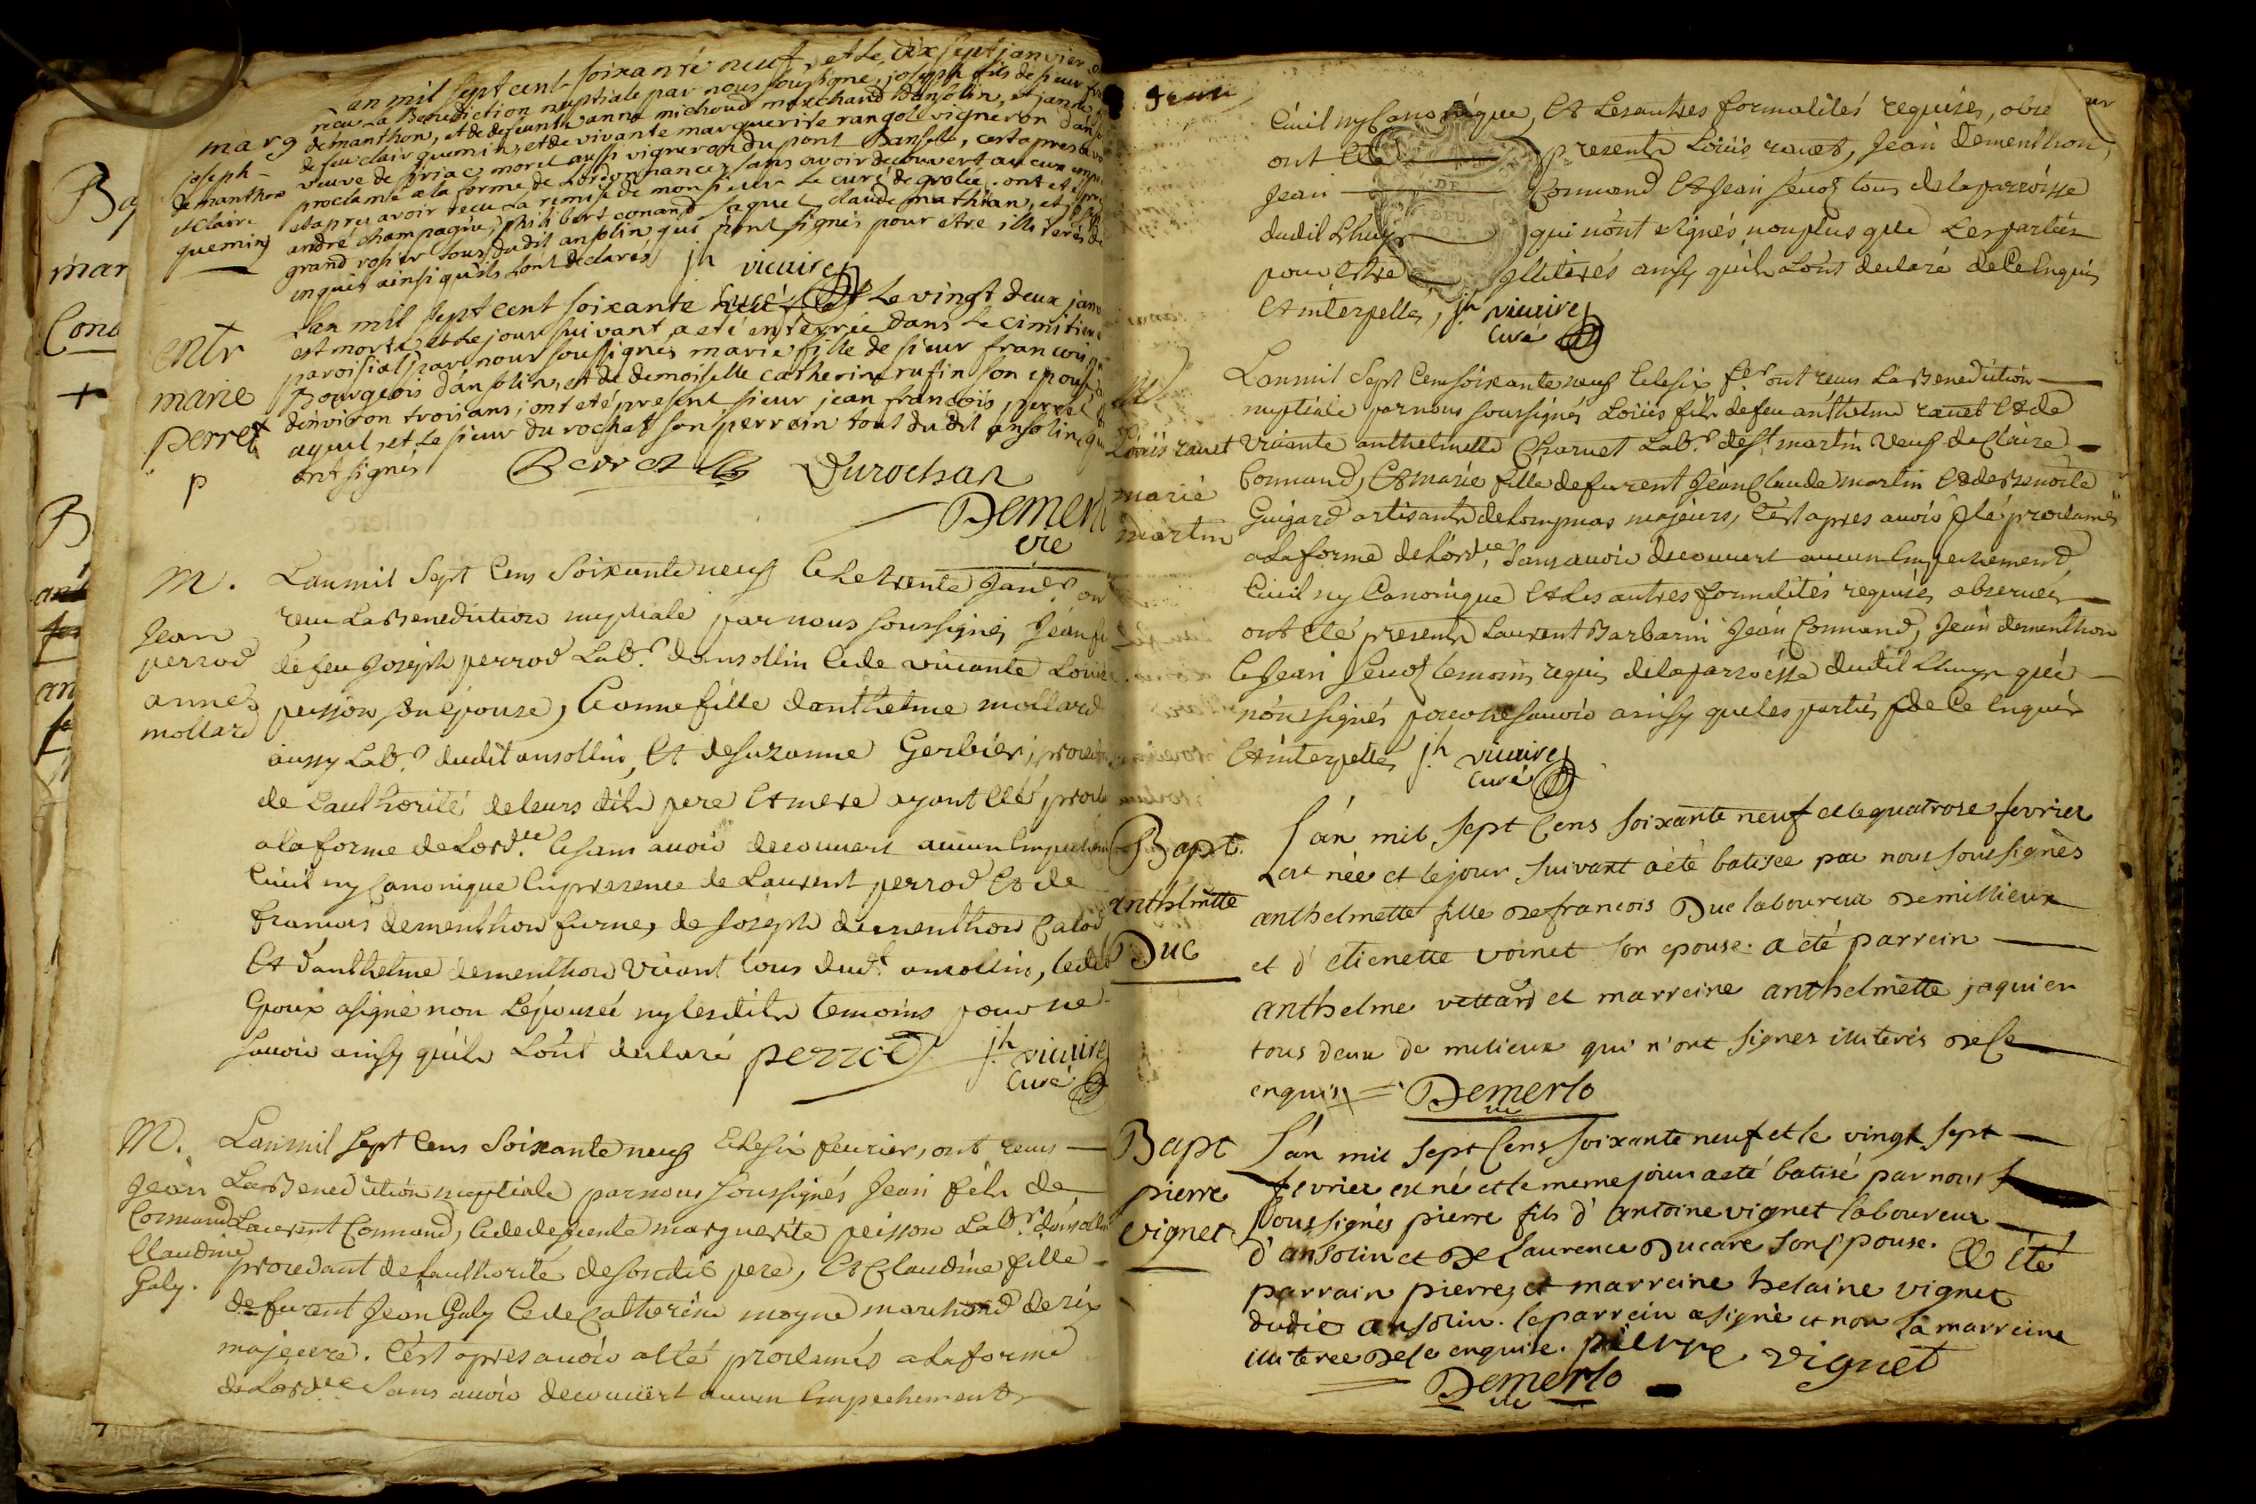 marg
joseph
demanthon
et claire
quemin
L'an mil sept cent soixante neuf, et le dix sept janvier
recu La Benediction nuptiale par nous soussigné, joseph fils de sieur
demanthon, et de defeunte anne michoud marchand d'ansolin, et janne
de feu clair quemin, et de vivante marguerite rangol vigneron
veuve de priac morel aussi vigneron du pont d'anselle, cest apres avoir
proclamé a la forme de Lordonnance, sans avoir decouvert aucun
et apres avoir recu La remise de monsieur Le curé de grolee. ont eté
andré champagne, philibert conand jaquet, claude mathian, et
grand rosier tous dudit ansolin qui n'ont signés pour etre illiterés de
enquis ainsi qu'ils Lont declarés jh vicaire
curé
entr
marie
perret
p
L'an mil sept cent soixante neuf et Le vingt deux janv
est morte et Le jour suivant a eté enterrée dans Le cimitiere
paroisial par nous soussignés marie fille de sieur francois
Bourgeois d'ansolin, et de demoiselle catherine rufin son epouse
d'environ trois ans, ont eté present sieur jean francois perret
ayeul, et Le sieur du rochat son perrain tout dudit ansolin, qui
ont signés Perret Durochat
Demerl
vre
M.
Jean
perrod
anne
mollard
Lanmil Sept Cens Soixante neuf Et Le trente Janer ont
receu La Benediction nuptiale par nous soussignés Jean fi
de feu Joseph perrod Labr d'ansollin Et de vivante Louise
peisson son épouse, Et anne fille d'anthelme mollard
aussy Labr dudit ansollin, Et de Suzanne Gerbier, proced
de Lauthorité de leurs dits pere Et mere ayant Eté procla
a la forme de Lordce Et sans avoir decouvert aucun Empechem
Civil ny Canonique En presence de Laurent perrod Et de
francois dementhon furne, de Joseph dementhon Calod
Et d'anthelme dementhon vivant tous dudt ansollin, Ledit
Epoux a signé non Lépouseé ny lesdits temoins pour ne
savoir ainsy qu'ils Lont declaré perrod jh vicaire
Curé
M.
Jean
Connand
Claudine
Galy.
Lanmil Sept Cens Soixante neuf Et Le six fevrier, ont receus
La Benediction nuptiale par nous soussignés Jean fils de
Laurent Connand, Et de defunte marguerite peisson Labr d'ansollin
procedant de Lauthorité de son dit pere, Et Claudine fille
de furent Jean Galy Et de Catherine moyne marchand de rix
majeure. C'est apres avoir eté proclamés a la forme
de Lordce sans avoir decouvert aucun Empechement
Civil ny Canonique, Et Les autres formalités requises, obse
ont Eté presents Loüis ravet, Jean dementhon
Jean Connand Et Jean Sevoz tous de la parroisse
dudit Lhuys qui n'ont signés non plus que Les parties
pour Estre illiterés ainsy qu'ils Lont declaré de Ce Enquis
Et interpellés, jh vicaire
Curé
M
Loüis ravet
marie
martin
Lanmil Sept Cens soixante neuf Et Le six fer ont receus La Benediction
nuptiale par nous soussignés Loüis fils de feu anthelme ravet Et de
vivante anthelmette Charvet Labr de St martin veuf de Claire
Connand, Et marie fille de furent Jean Claude martin Et de Benoite
Guigard artisants de Lompnas majeurs, C'est apres avoir Eté proclamés
a la forme de Lordce, sans avoir decouvert aucun Empechement
Civil ny Canonique Et Les autres formalités requises observées
ont Eté presents Laurent Barbarin Jean Connand, Jean dementhon
Et Jean Sevoz temoins requis de la parroisse dudit Lhuys qui
n'ont signés pour ne savoir ainsy que les parties de Ce Enquis
Et interpellés jh vicaire
Curé
Bapt.
anthelmette
Duc
L'an mil sept Cens soixante neuf et le quatorze fevrier
est née et le jour suivant a été batisée par nous soussignés
anthelmette fille de francois Duc laboureur de millieux
et d'etienette voinet son epouse. a été parrein
anthelme vettard et marreine anthelmette jaquier
tous deux de milieux qui n'ont signes illiterés de ce
enquis = Demerlo
vic
Bapt
pierre
vignet
L'an mil sept Cens soixante neuf et le vingt sept
fevrier est né et le meme jour a eté batisé par nous
soussignés pierre fils d'antoine vignet laboureur
d'ansolin et de laurence Ducare son epouse. a été
parrain pierre et marreine helaine vignet
dudit ansolin. le parrein a signé et non la marreine
illiteree de ce enquise. pierre vignet
Demerlo
vic